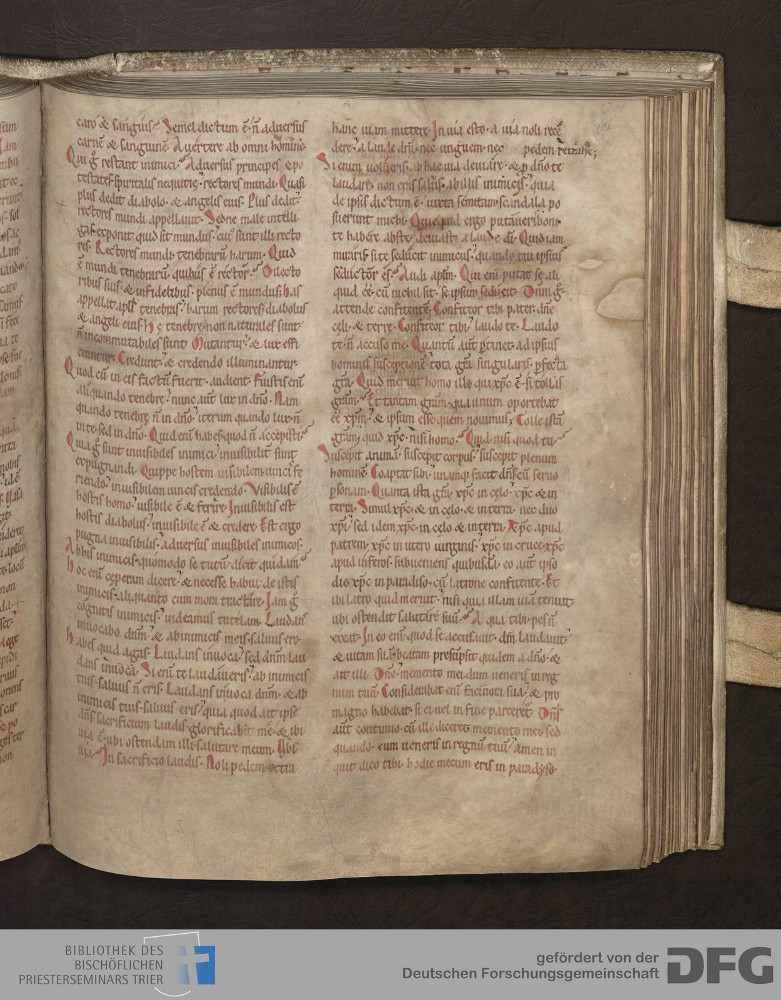 caro & sanguis. Semel dictum ē. ñ aduersus
carnē & sanguinē. Auertere ab omni homine.
Qui ḡ restant inimici. Aduersus principes & po
testates spiritalis nequitię. rectores mundi. Quasi
plus dedit diabolo. & angelis eius. Plus dedit.
rectores mundi appellauit. Sed ne male intelli
gas. exponit quid sit mundus. cui' sunt illi recto
res. Rectores mundi tenebrarū harum. Quid
ē mundi tenebrarū. quibus ē rector.
ribus suis & infidelibus. plenus ē mundus. has
appellat apls tenebras. harum rectores. diabolus
& angeli eius. Hę tenebrę non naturales sunt.
ñ incommutabiles sunt. Mutantur. & lux effi
ciuntur. Credunt. & credendo illuminantur.
Quod cū in eis factū fuerit. audient. Fuistis enī
aliquando tenebrę. nunc aut̄ lux in dn̄o. Nam
quando tenebrę. ñ in dn̄o. iterum quando lux. ñ
in te. sed in dn̄o. Quid enī habes quod ñ accepisti.
Quia ḡ sunt inuisibiles inimici. inuisibilit̄ sunt
expugnandi. Quippe hostem uisibilem uincis fe
riendo. inuisibilem uincis credendo. Visibilis ē
hostis homo. uisibile ē & ferire. Inuisibilis est
hostis diabolus. inuisibile ē & credere. Est ergo
pugna inuisibilis. aduersus inuisibiles inimicos.
Ab his inimicis. quomodo se tutū dicit quidam.
Hoc enī cęperam dicere. & necesse habui de istis
inimicis aliquanto cum mora tractare. Iam ḡ
cognitis inimicis. uideamus tutelam. Laudans
inuocabo dnm̄. & ab inimicis meis saluus ero.
Habes quid agas. Laudans inuoca. sed dnm̄ lau
dans inuoca. Si enī te laudaueris. ab inimicis
tuis saluus ñ eris. Laudans inuoca dnm̄. & ab
inimicis tuis saluus eris. quia quid ait ipse
dn̄s. Sacrificium laudis glorificabit me. & ibi
uia ē. ubi ostendam illi salutare meum. Vbi
uia. In sacrificio laudis. Noli pedem extra
hanc uiam mittere. In uia esto. a uia noli rece
dere. a laude dn̄i. nec unguem. nec pedem retrahe;
Si enim uolueris ab hac uia deuiare. & p dn̄o te
laudare. non eris saluus ab illis inimicis. quia
de ipsis dictum ē. iuxta semitam scandala po
suerunt michi. Quicquid ergo putaueris boni
te habere abs te. deuiasti a laude dī. Quid iam
miraris si te seducit inimicus. quando tui ipsius
seductor es. Audi aplm. Qui enī putat se ali
quid ee. cū nichil sit. se ipsum seducit. Dnm̄ ḡ
attende confitentē. Confiteor tibi pater dn̄e
cęli. & terrę. Confiteor tibi. laudo te. Laudo
te. ñ accuso me. Quantū aut̄ p̱tinet ad ipsius
hominis susceptionē. tota grā. singularis. p̱fecta
grā. Quid meruit homo ille qui xp̄c ē. si tollas
grām. Et tantam grām. qua unum oportebat
ee xp̄m. & ipsum esse quem nouimus. Tolle istā
grām. quid xp̄c. nisi homo. Quid nisi quod tu.
Suscepit animā. suscepit corpus. suscepit plenum
hominē. Coaptat sibi. unamq; facit dn̄s cū seruo
p̱sonam. Quanta ista grā. xp̄c in cęlo. xp̄c & in
terra. Simul xp̄c & in cęlo. & in terra. nec duo
xp̄i. sed idem xp̄c in cęlo & in terra. Xp̄c apud
patrem. xp̄c in utero uirginis. xp̄c in cruce. xp̄c
apud inferos subueniens quibusdā. eo aut̄ ipso
die xp̄c in paradiso. cū latrone confitente. Et
ibi latro quid meruit. nisi quia illam uiā tenuit
ubi ostendit salutare suū. A qua tibi pes ñ
exeat. In eo enī quod se accusauit. dm̄ laudauit
& uitam suā beatam presumpsit quidem a dn̄o. &
ait illi. Dn̄e. memento mei dum ueneris in reg
num tuū. Considerabat enī facinora sua. & pro
magno habebat. si ei uel in fine parceret. Dn̄s
aut̄ continuo cū ille diceret memento mei. sed
quando. cum ueneris in regnū tuū. amen in
quit dico tibi. hodie mecum eris in paradyso.
BIBLIOTHEK DES
BISCHÖFLICHEN
PRIESTERSEMINARS TRIER
gefördert von der
Deutschen Forschungsgemeinschaft
DFG